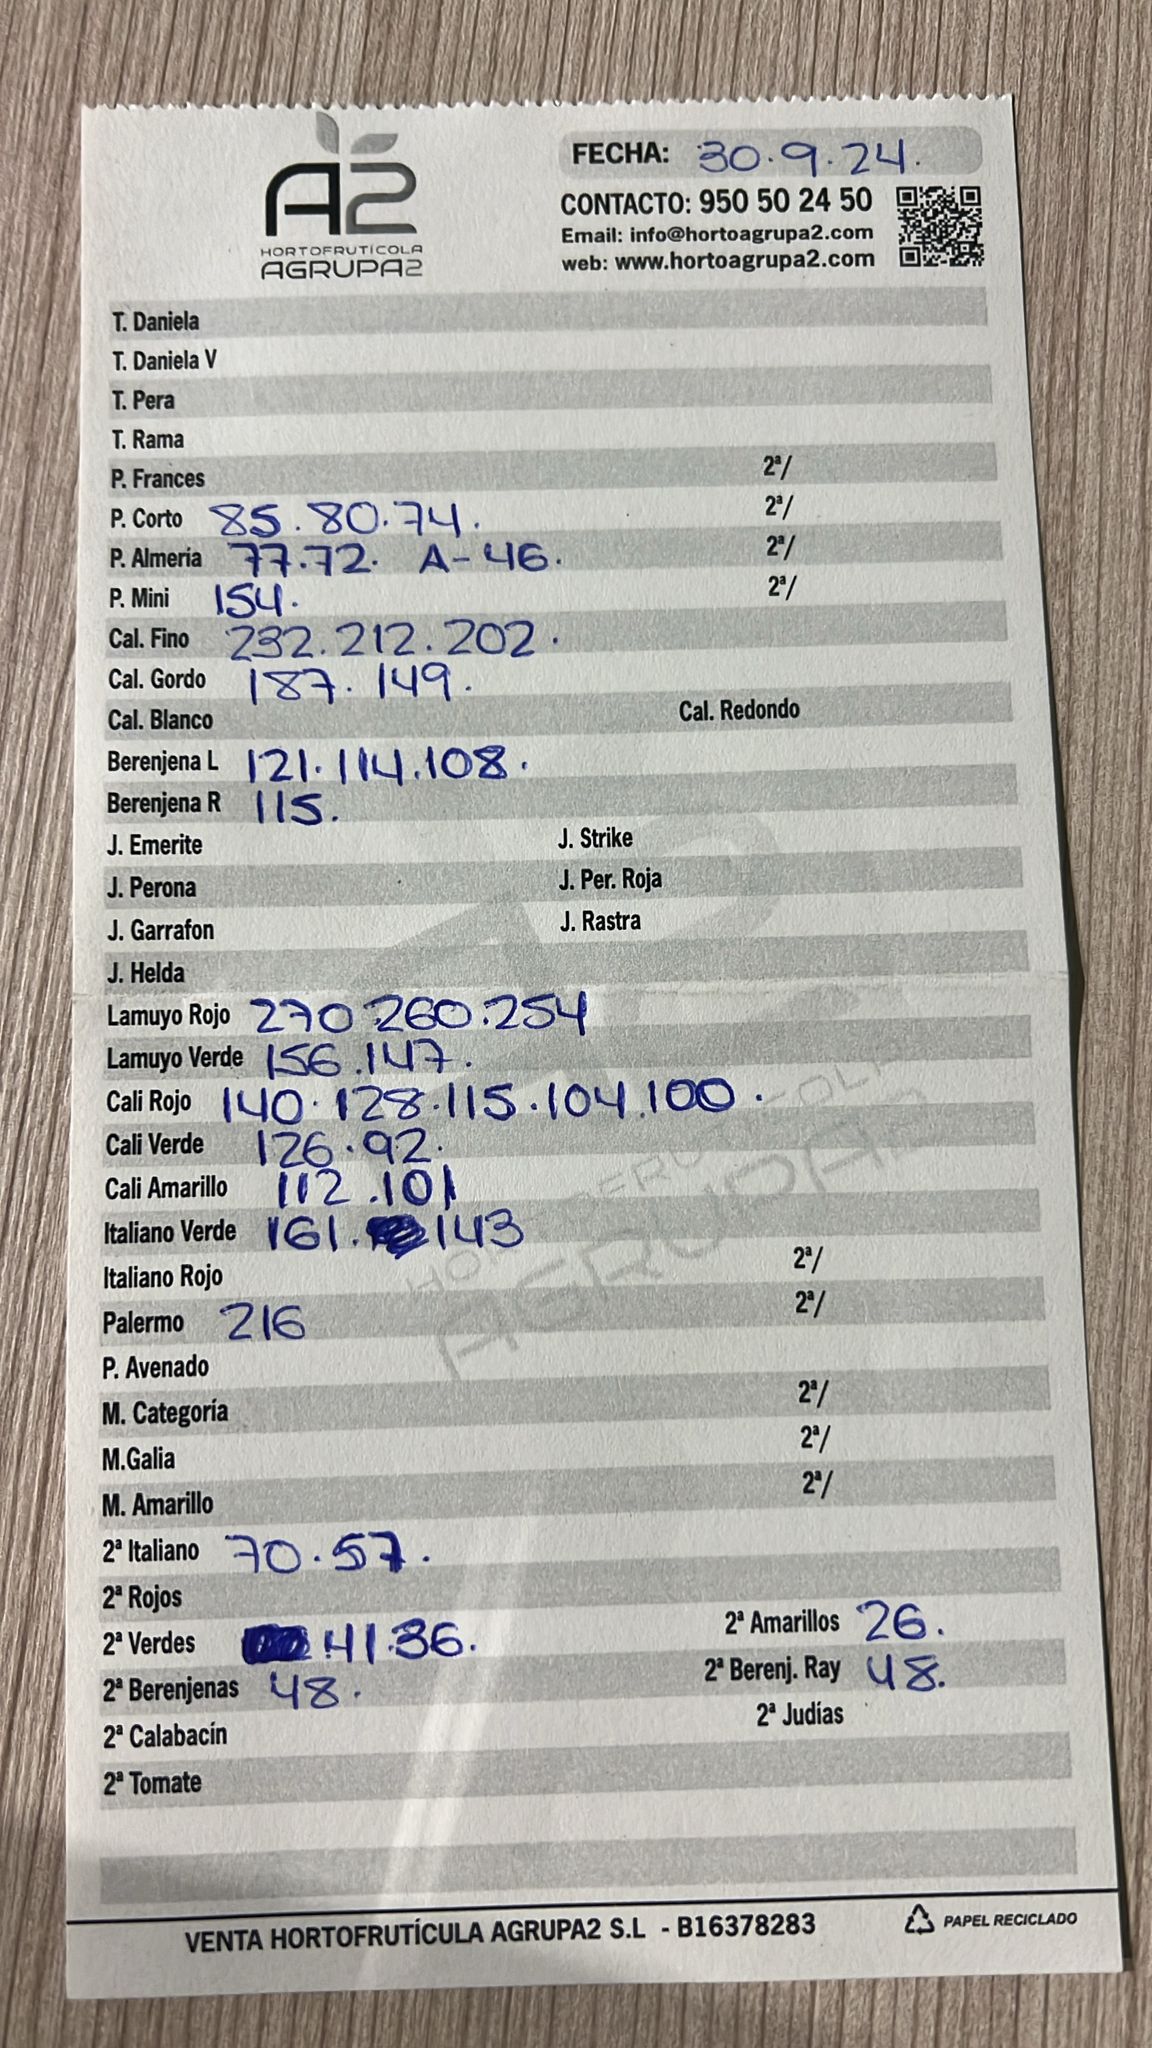 A2
HORTOFRUTÍCOLA
AGRUPA2
FECHA: 30.9.24.
CONTACTO: 950 50 24 50
Email: info@hortoagrupa2.com
web: www.hortoagrupa2.com
T. Daniela
T. Daniela V
T. Pera
T. Rama
P. Frances 2ª/
P. Corto 85.80.74. 2ª/
P. Almería 77.72. A-46. 2ª/
P. Mini 154. 2ª/
Cal. Fino 232.212.202.
Cal. Gordo 187.149.
Cal. Blanco Cal. Redondo
Berenjena L 121.114.108.
Berenjena R 115.
J. Emerite J. Strike
J. Perona J. Per. Roja
J. Garrafon J. Rastra
J. Helda
Lamuyo Rojo 270 260.254
Lamuyo Verde 156.147.
Cali Rojo 140.128.115.104.100.
Cali Verde 126.92.
Cali Amarillo 112.101
Italiano Verde 161. 143
Italiano Rojo 2ª/
Palermo 216 2ª/
P. Avenado
M. Categoría 2ª/
M.Galia 2ª/
M. Amarillo 2ª/
2ª Italiano 70.57.
2ª Rojos
2ª Verdes 41.36. 2ª Amarillos 26.
2ª Berenjenas 48. 2ª Berenj. Ray 48.
2ª Calabacín 2ª Judías
2ª Tomate
HORTOFRUTÍCOLA
AGRUPA2
VENTA HORTOFRUTÍCULA AGRUPA2 S.L - B16378283
PAPEL RECICLADO